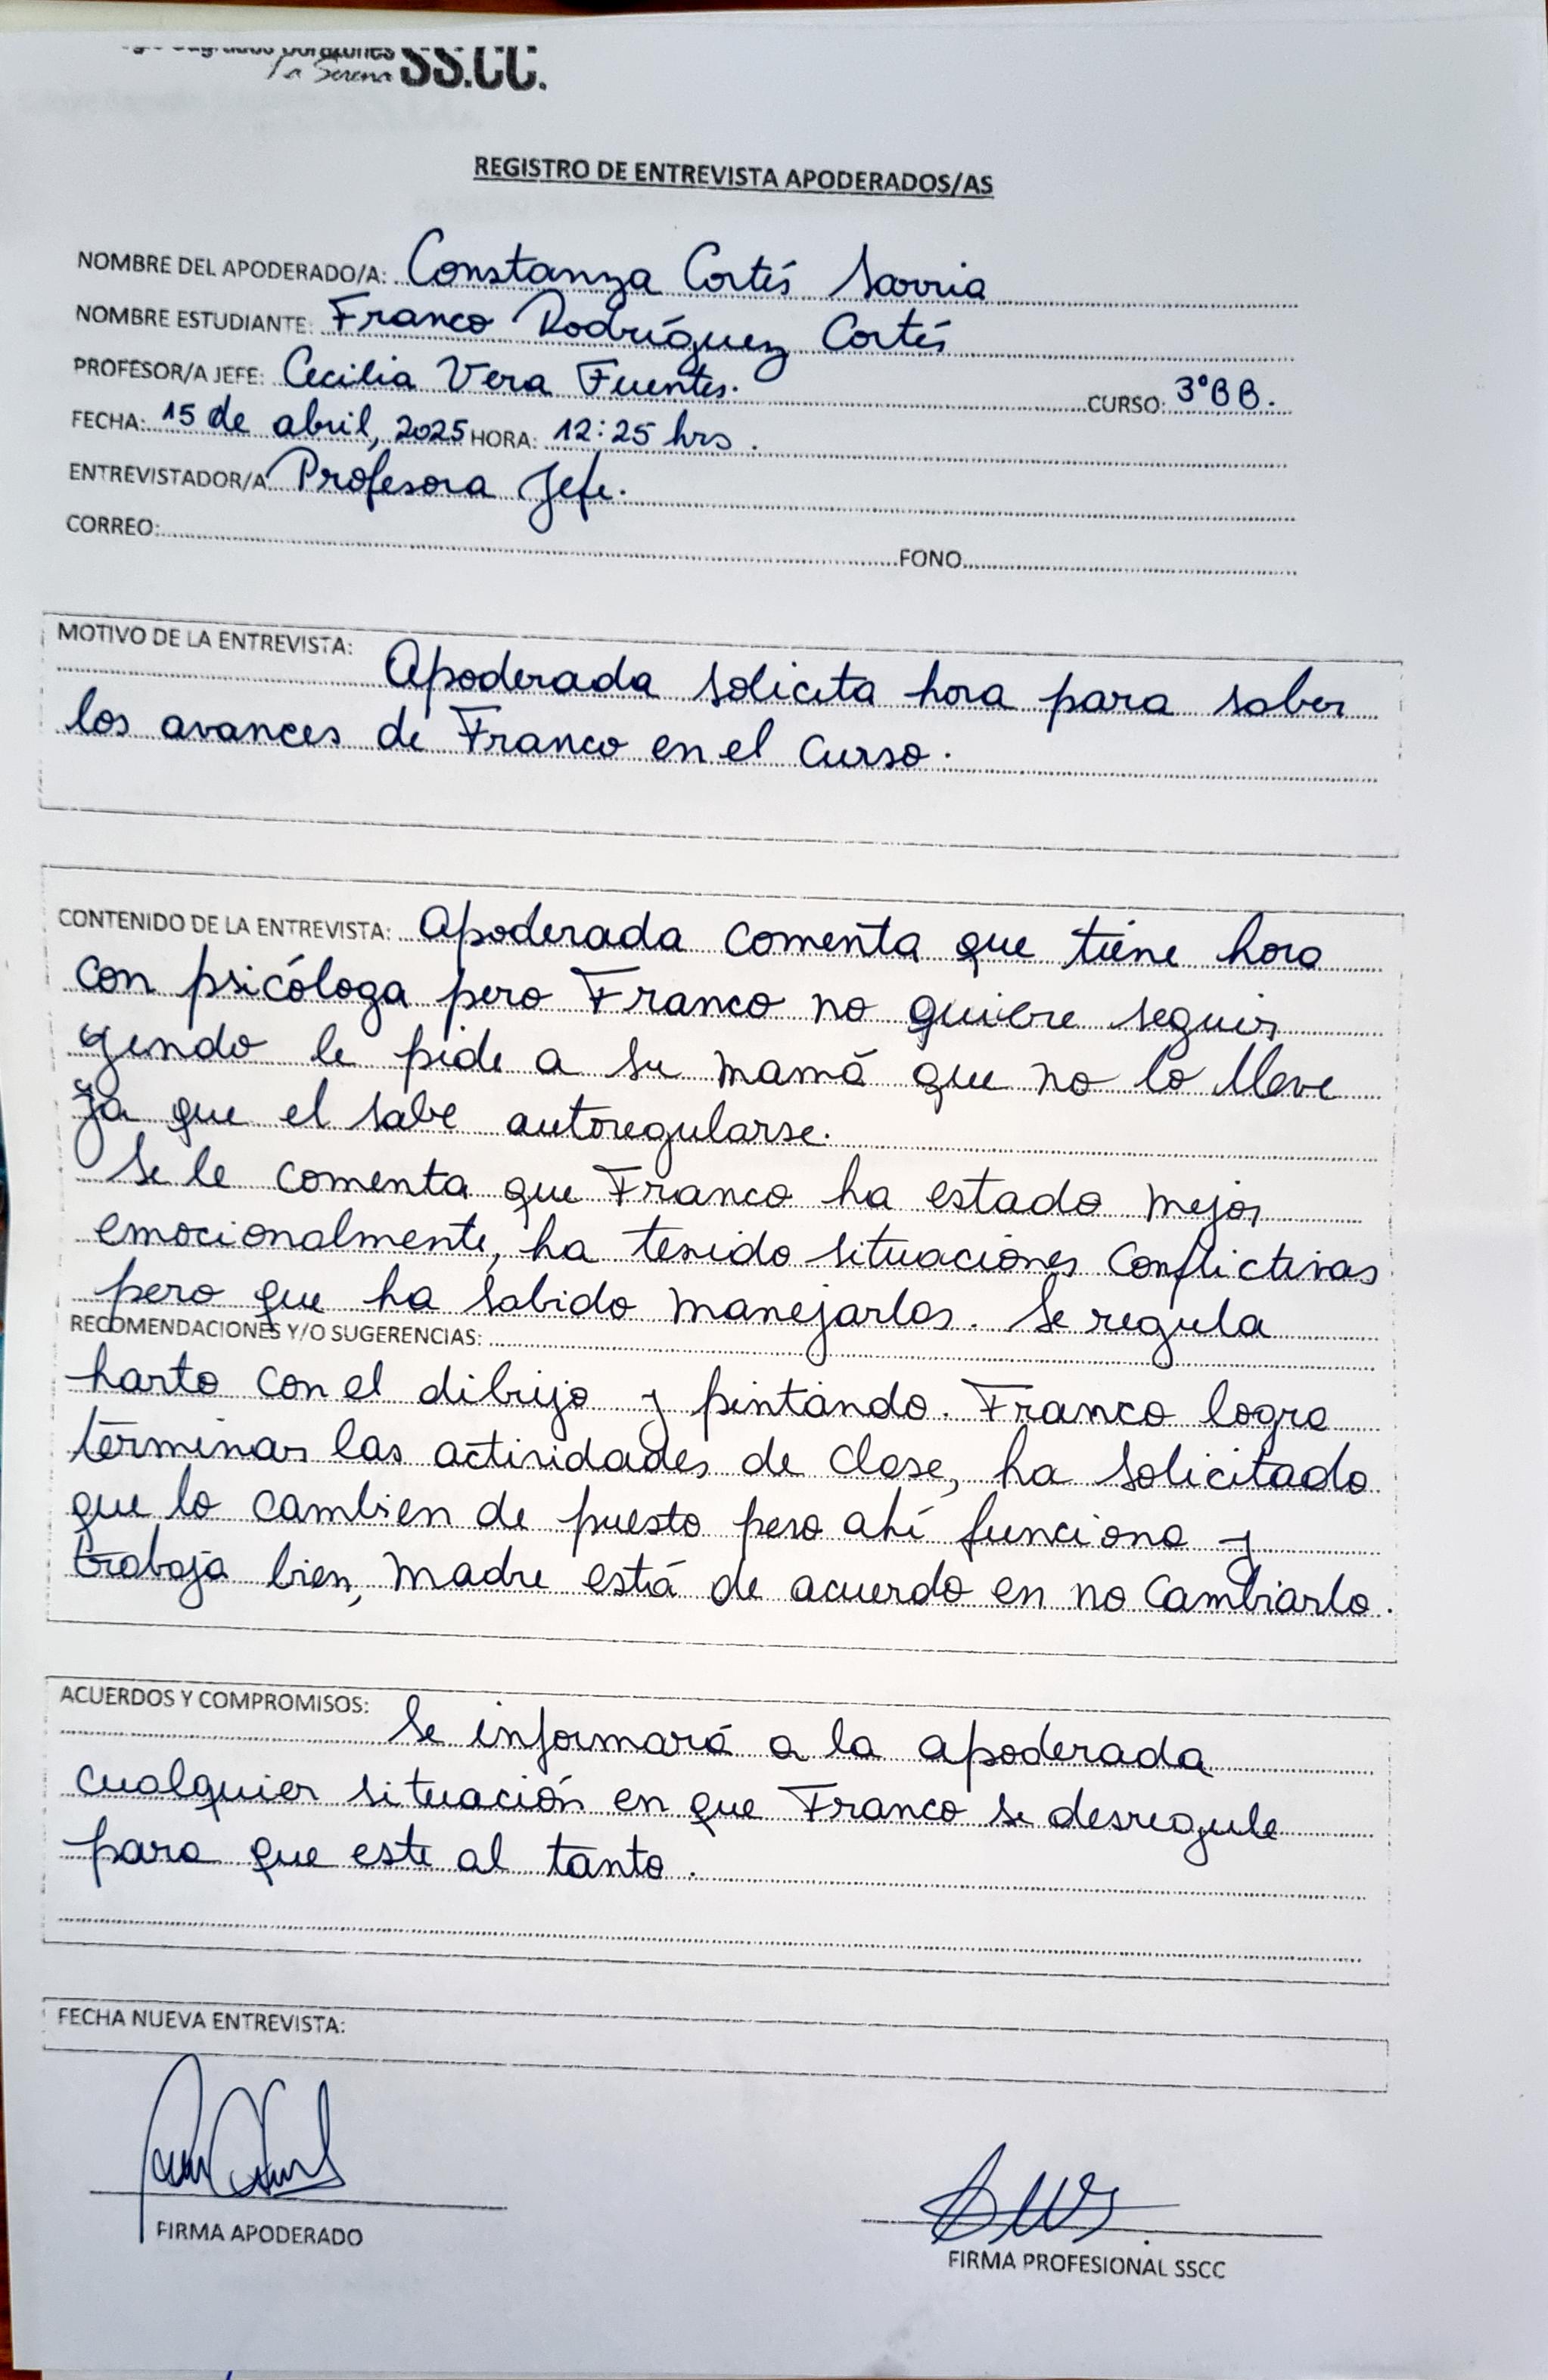 Sagrados Corazones
La Serena SS.CC.
REGISTRO DE ENTREVISTA APODERADOS/AS
NOMBRE DEL APODERADO/A: Constanza Cortés Sarria
NOMBRE ESTUDIANTE: Franco Rodríguez Cortés
PROFESOR/A JEFE: Cecilia Vera Fuentes. CURSO: 3°BB.
FECHA: 15 de abril, 2025 HORA: 12:25 hrs.
ENTREVISTADOR/A Profesora Jefe.
CORREO: FONO
MOTIVO DE LA ENTREVISTA: Apoderada solicita hora para saber
los avances de Franco en el curso.
CONTENIDO DE LA ENTREVISTA: Apoderada comenta que tiene hora
con psicóloga pero Franco no quiere seguir
yendo le pide a su mamá que no lo lleve
ya que el sabe autoregularse.
Se le comenta que Franco ha estado mejor
emocionalmente, ha tenido situaciones conflictivas
pero que ha sabido manejarlas. Se regula
RECOMENDACIONES Y/O SUGERENCIAS:
harto con el dibujo y pintando. Franco logra
terminar las actividades de clase, ha solicitado
que lo cambien de puesto pero ahí funciona y
trabaja bien, madre está de acuerdo en no cambiarlo.
ACUERDOS Y COMPROMISOS: Se informará a la apoderada
cualquier situación en que Franco se desregule
para que este al tanto.
FECHA NUEVA ENTREVISTA:
FIRMA APODERADO
FIRMA PROFESIONAL SSCC